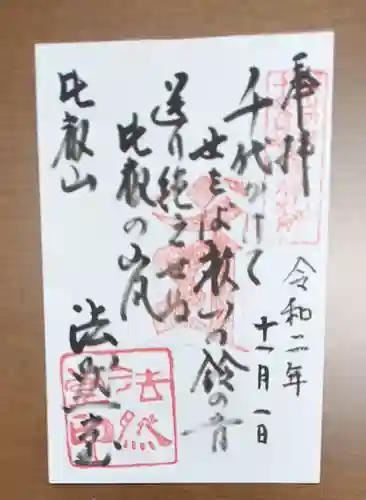 奉拝
令和二年
十一月一日
千代かけて
世をば救の鈴の音
送り絶えせぬ
比叡の山風
比叡山
法然堂
法然
堂印